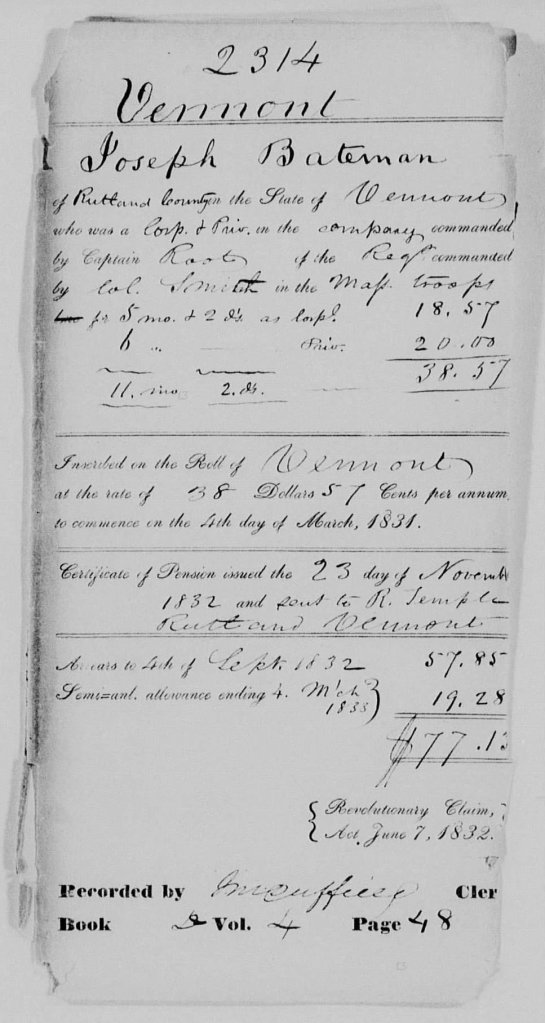 2314
Vermont
Joseph Bateman
of Rutland County in the State of Vermont
who was a Corp. & Priv. in the company commanded
by Captain Root of the Regt. commanded
by Col. Smith in the Mass. troops
for 5 mo. & 2 ds. as Corpl. 18.57
6 " Priv. 20.00
38.57
11. mo 2. ds.
Inscribed on the Roll of Vermont
at the rate of 38 Dollars 57 Cents per annum,
to commence on the 4th day of March, 1831.
Certificate of Pension issued the 23 day of Novemb
1832 and sent to R. Temple
Rutland Vermont
Arrears to 4th of Sept. 1832 57.85
Semi-anl. allowance ending 4. Mch 1833 } 19.28
$77.13
{ Revolutionary Claim,
Act June 7, 1832.
Recorded by Cler
Book Vol. 4 Page 48